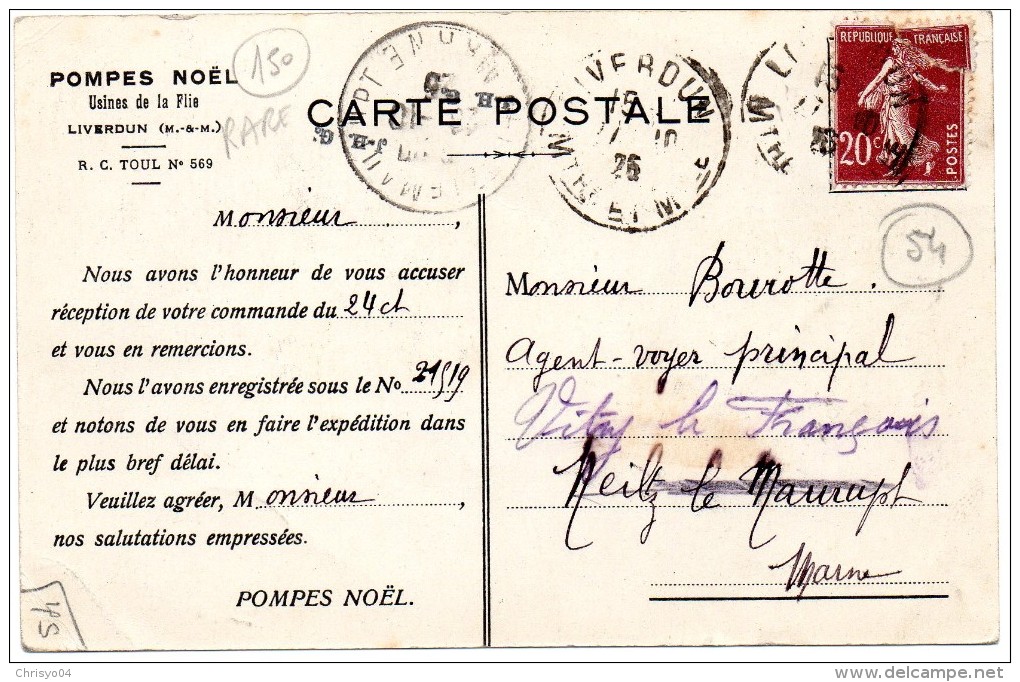 POMPES NOËL
Usines de la Flie
LIVERDUN (M.-&-M.)
R. C. TOUL Nº 569
150
RARE
CARTE POSTALE
LIVERDUN
15
11-10
26
MTHE ET M
RÉPUBLIQUE FRANÇAISE
20c
POSTES
54
Monsieur ,
Nous avons l'honneur de vous accuser
réception de votre commande du 24 ct
et vous en remercions.
Nous l'avons enregistrée sous le No 21519
et notons de vous en faire l'expédition dans
le plus bref délai.
Veuillez agréer, Monsieur ,
nos salutations empressées.
POMPES NOËL.
Monsieur Bourotte.
Agent-voyer principal
Vitry le François
Heiltz le Maurupt
Marne
54
Chrisyo04
delcampe.net